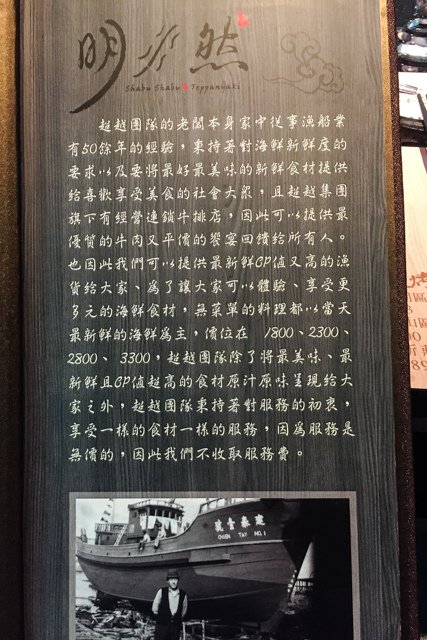 明水然
Shabu Shabu Teppanyaki
超越團隊的老闆本身家中從事漁船業
有50餘年的經驗，秉持著對海鮮新鮮度的
要求以及要將最好最美味的新鮮食材提供
給喜歡享受美食的社會大眾，且超越集團
旗下有經營連鎖牛排店，因此可以提供最
優質的牛肉又平價的饗宴回饋給所有人。
也因此我們可以提供最新鮮CP值又高的漁
貨給大家、為了讓大家可以體驗、享受更
多元的海鮮食材，無菜單的料理都以當天
最新鮮的海鮮為主，價位在 1800、2300、
2800、 3300，超越團隊除了將最美味、最
新鮮且CP值超高的食材原汁原味呈現給大
家之外，超越團隊秉持著對服務的初衷，
享受一樣的食材一樣的服務，因為服務是
無價的，因此我們不收取服務費。
號壹泰建
CHIEN TAY NO.1